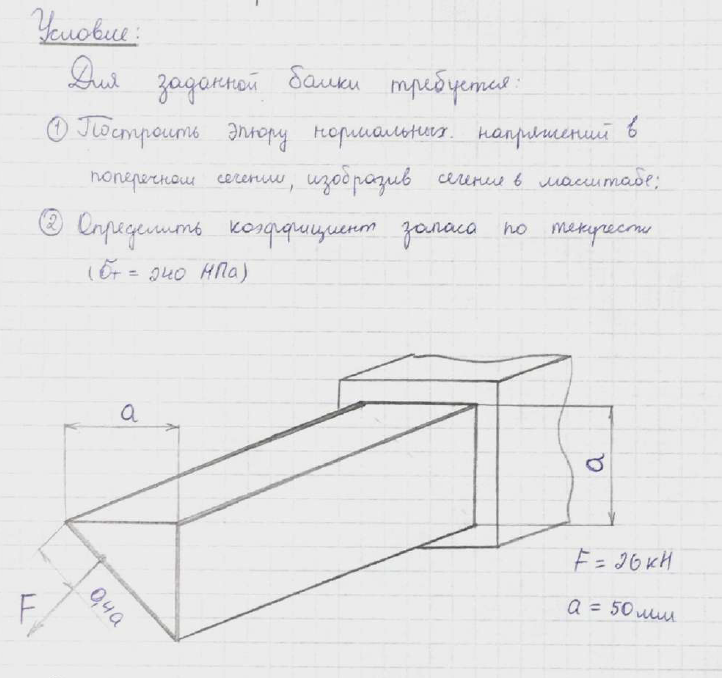 Условие:
Для заданной балки требуется:
① Построить эпюру нормальных. напряжений в
поперечном сечении, изобразив сечение в масштабе;
② Определить коэффициент запаса по текучести
(σт = 240 МПа)
a
a
F
0,4a
F = 26 кН
a = 50 мм